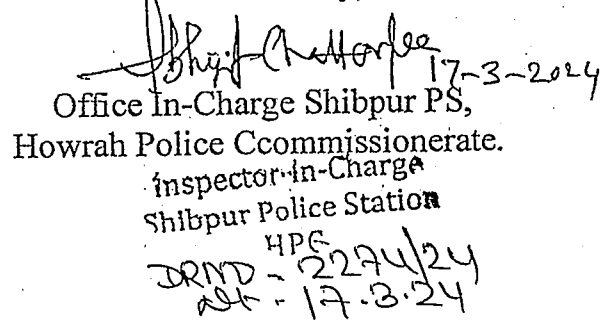 Abhijit Chatterjee
17-3-2024
Office In-Charge Shibpur PS,
Howrah Police Ccommissionerate.
Inspector-in-Charge
Shibpur Police Station
HPC
DRND - 2274/24
dt - 17.3.24